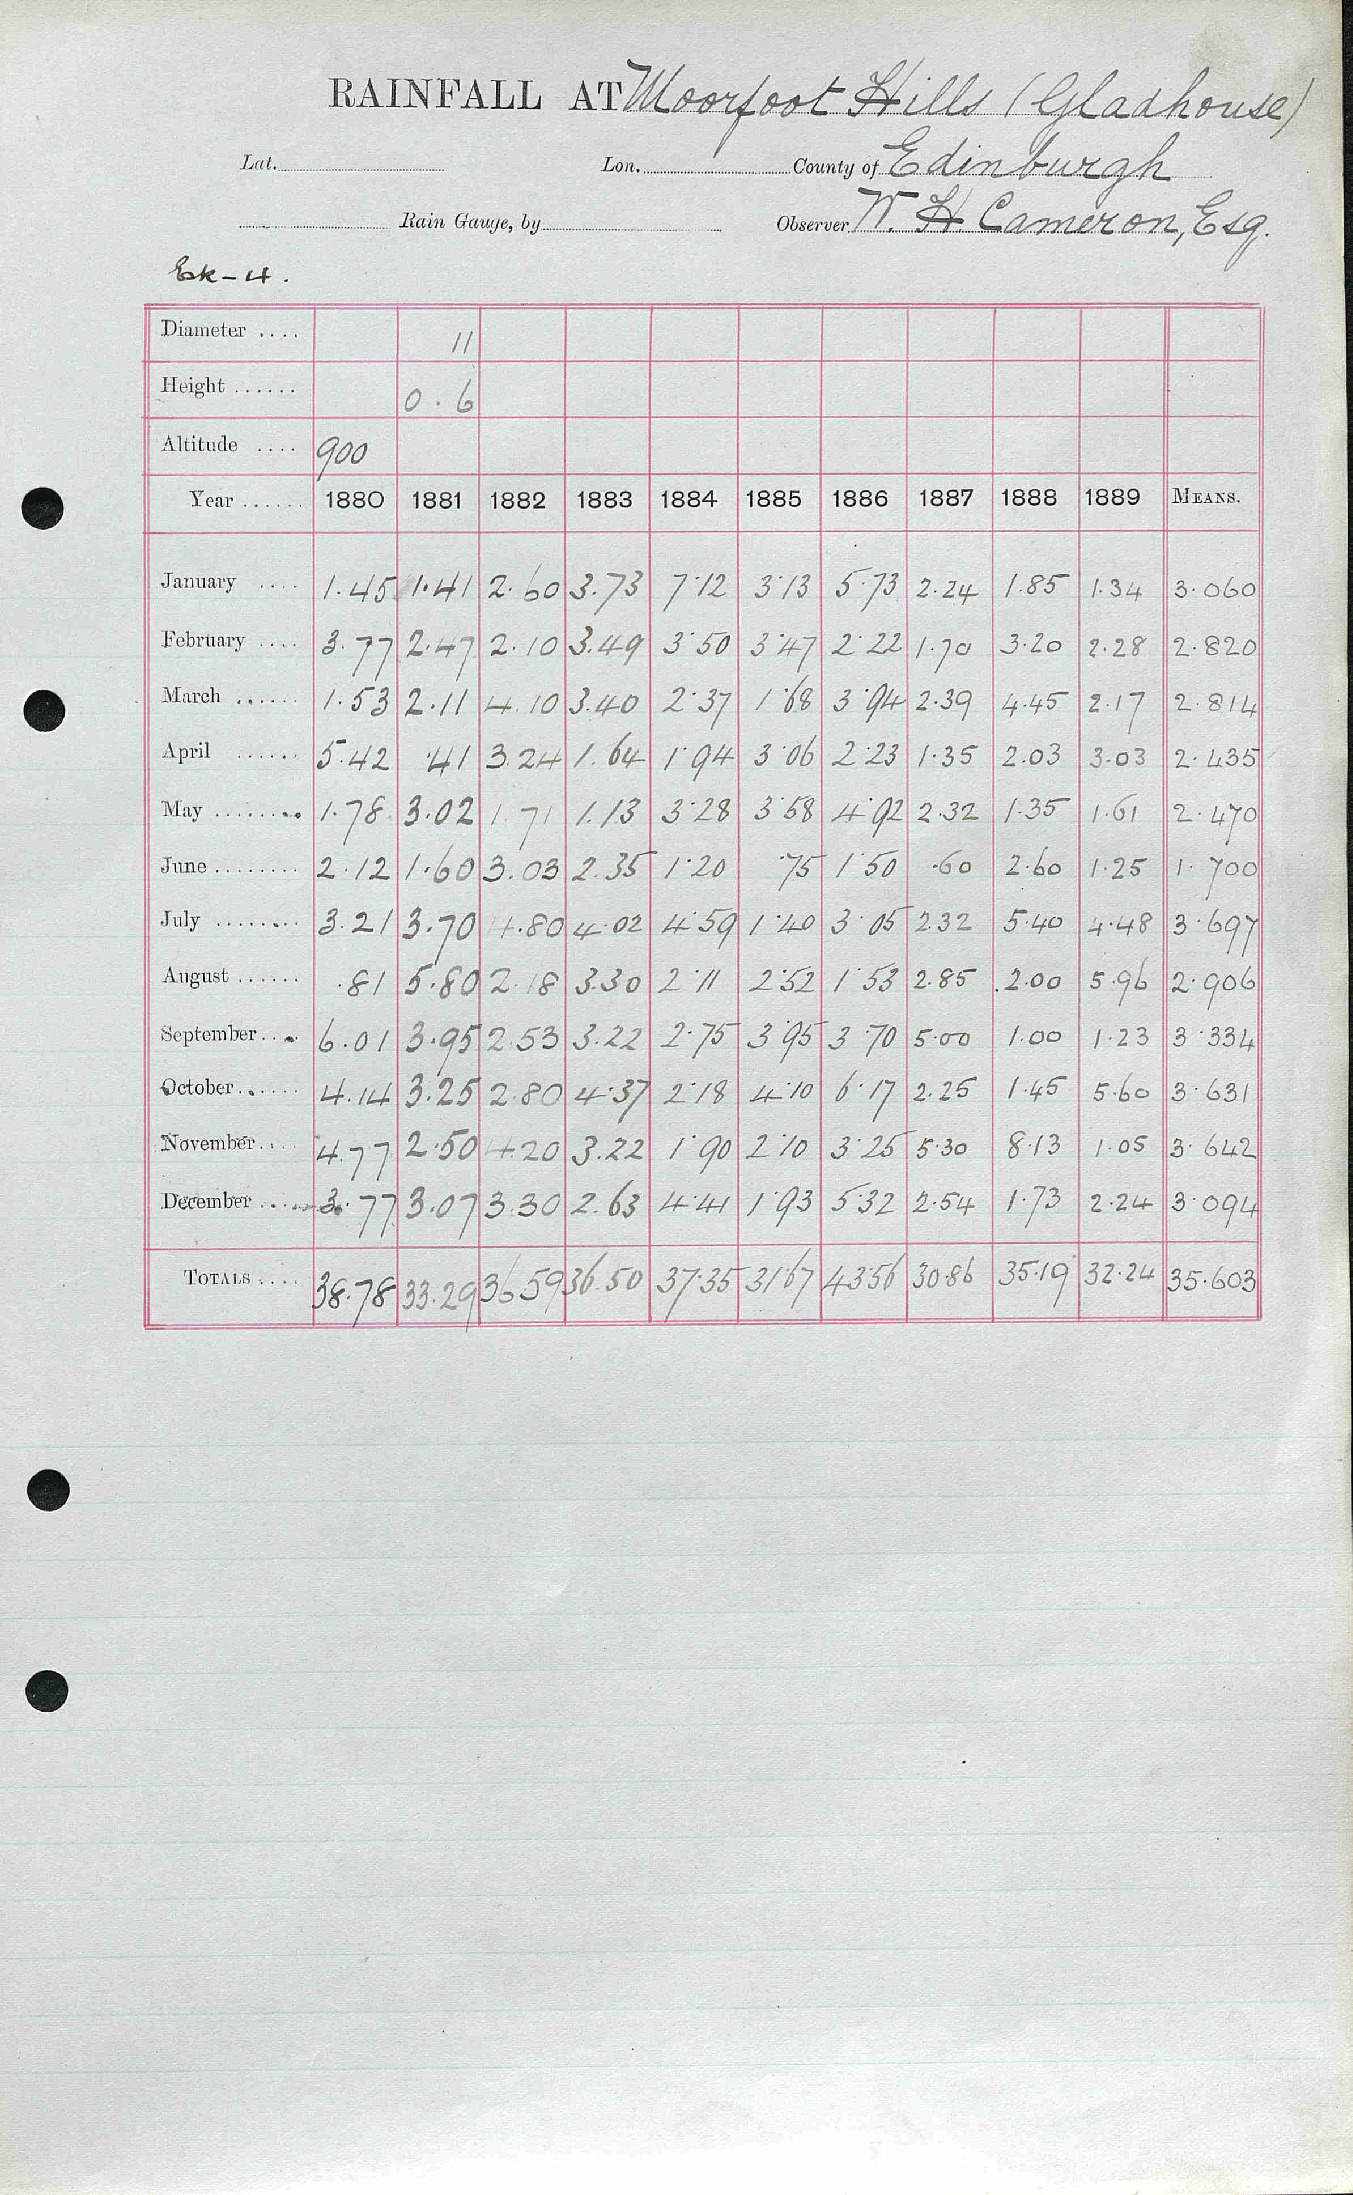 RAINFALL AT Moorfoot Hills (Gladhouse)
Lat. Lon. County of Edinburgh
Rain Gauge, by Observer W. H Cameron, Esq.
Esk-4.
Diameter .... 11
Height ...... 0.6
Altitude .... 900
Year ...... 1880 1881 1882 1883 1884 1885 1886 1887 1888 1889 MEANS.
January .... 1.45 1.41 2.60 3.73 7.12 3.13 5.73 2.24 1.85 1.34 3.060
February .... 3.77 2.47 2.10 3.49 3.50 3.47 2.22 1.70 3.20 2.28 2.820
March ...... 1.53 2.11 4.10 3.40 2.37 1.68 3.94 2.39 4.45 2.17 2.814
April ...... 5.42 .41 3.24 1.64 1.94 3.06 2.23 1.35 2.03 3.03 2.435
May ........ 1.78 3.02 1.71 1.13 3.28 3.58 4.92 2.32 1.35 1.61 2.470
June ........ 2.12 1.60 3.03 2.35 1.20 .75 1.50 .60 2.60 1.25 1.700
July ........ 3.21 3.70 4.80 4.02 4.59 1.40 3.05 2.32 5.40 4.48 3.697
August ...... .81 5.80 2.18 3.30 2.11 2.52 1.53 2.85 2.00 5.96 2.906
September .... 6.01 3.95 2.53 3.22 2.75 3.95 3.70 5.00 1.00 1.23 3.334
October ...... 4.14 3.25 2.80 4.37 2.18 4.10 6.17 2.25 1.45 5.60 3.631
November .... 4.77 2.50 4.20 3.22 1.90 2.10 3.25 5.30 8.13 1.05 3.642
December .... 3.77 3.07 3.30 2.63 4.41 1.93 5.32 2.54 1.73 2.24 3.094
TOTALS .... 38.78 33.29 36.59 36.50 37.35 31.67 43.56 30.86 35.19 32.24 35.603